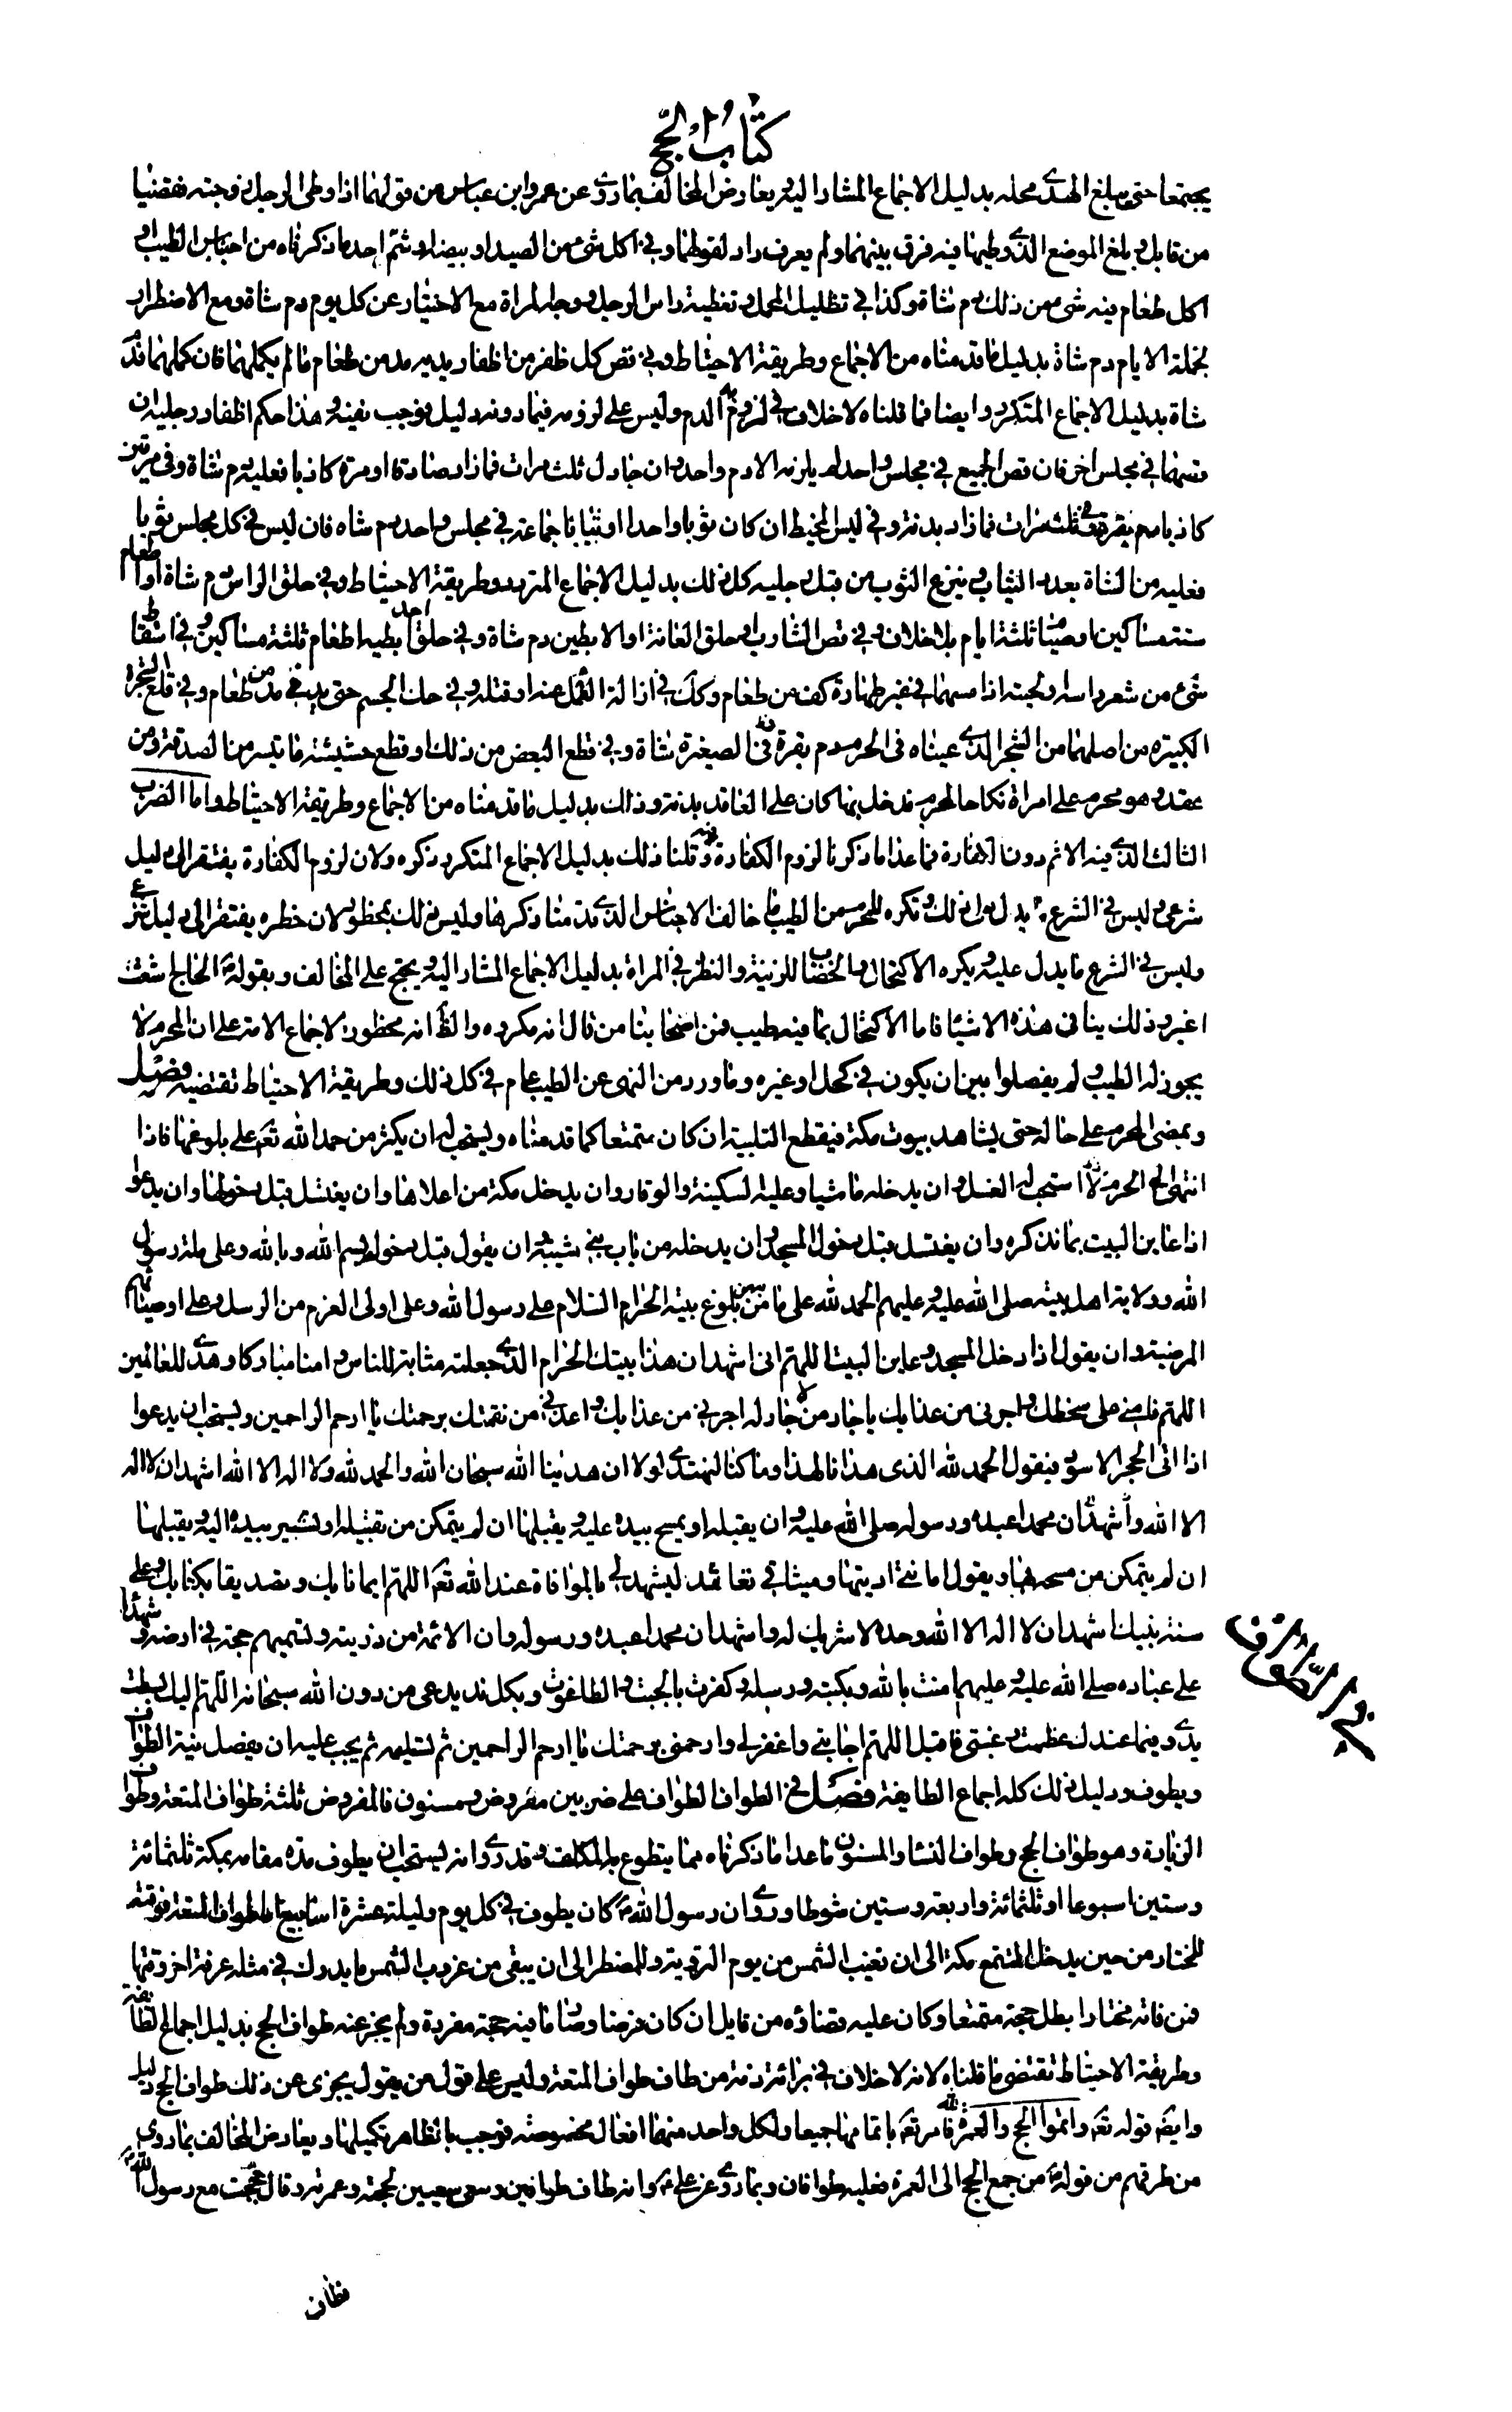 كتاب الحج
يجتمعا حتى يبلغ الهدى محله بدليل الاجماع المشار اليه ويعارض المخالف بما روى عن عمر وابن عباس من قولهما اذا وطى الرجل زوجته فقضيا
من قابل وبلغ الموضع الذى وطيها فيه فرق بينهما ولم يعرف راد لقولهما وفى اكل شئ من الصيد او بيضه او شم احد ما ذكرناه من اجناس الطيب او
اكل طعام فيه شئ من ذلك دم شاة وكذا فى تظليل المحمل وتغطية راس الرجل ووجه المراة مع الاختيار عن كل يوم دم شاة ومع الاضطرار
لجملة الايام دم شاة بدليل ما قدمناه من الاجماع وطريقة الاحتياط وفى قص كل ظفر من اظفار يديه مد من طعام فالم يكملهما فان كملهما فدم
شاة بدليل الاجماع المتكرر وايضا فما قلناه لا خلاف فى لزوم الدم به وليس على لزومه فيما دونه دليل فوجب نفيه وهذا حكم اظفار رجليه ان
قصهما فى مجلس اخر فان قص الجميع فى مجلس واحد لم يلزمه الا دم واحد وان جادل ثلث مرات فما زاد صادقا او مرة كاذبا فعليه دم شاة وفى مرتين
كاذبا دم بقرة وفى ثلث مرات فما زاد بدنة وفى لبس المخيط ان كان ثوبا واحدا او ثيابا جماعة فى مجلس واحد دم شاه فان لبس فى كل مجلس ثوبا
فعليه من الشاة بعدد الثياب وينزع الثوب من قبل رجليه كل ذلك بدليل الاجماع المتردد وطريقة الاحتياط وفى حلق الراس دم شاة او اطعام
ستة مساكين او صيام ثلثة ايام بلا خلاف وفى قص الشارب او حلق العانة او الابطين دم شاة وفى حلق احد ابطيه اطعام ثلثة مساكين وفى اسقاط
شئ من شعر راسه او لحيته اذا مسهما فى غير طهارة كف من طعام وكذلك فى ازالة القمل عنه او قتله وفى حك الجسم حتى يدمى مد من طعام وفى قلع الشجرة
الكبيره من اصلها من الشجر الذى عيناه فى الحرم دم بقرة وفى الصغيرة شاة وفى قطع البعض من ذلك او قطع حشيشه ما تيسر من الصدقة ومن
عقد وهو محرم على امراة نكاحا لمحرم فدخل بها كان على العاقد بدنة وذلك بدليل ما قدمناه من الاجماع وطريقة الاحتياط واما الضرب
الثالث الذى فيه الاثم دون الكفارة فما عدا ما ذكرنا لزوم الكفارة فيه وقلنا ذلك بدليل الاجماع المتكرر ذكره ولان لزوم الكفارة يفتقر الى دليل
شرعى وليس فى الشرع ما يدل على ذلك ويكره للمحرم من الطيب ما خالف الاجناس الذى قدمنا ذكرها وليس ذلك بمحظور لان حظره يفتقر الى دليل شرعى
وليس فى الشرع ما يدل عليه ويكره الاكتحال والخضاب للزينة والنظر فى المراة بدليل الاجماع المشار اليه ويحتج على المخالف وبقوله ع الحاج شعث
اغبر وذلك ينافى هذه الاشيا فاما الاكتحال بما فيه طيب فمن اصحابنا من قال انه مكروه والظ انه محظور لاجماع الامة على ان المحرم لا
يجوز له الطيب ولم يفصلوا بين ان يكون فى كحل او غيره وما ورد من النهى عن الطيب عام فى كل ذلك وطريقة الاحتياط تقتضيه فصل
ويمضى المحرم على حاله حتى يشاهد بيوت مكة فيقطع التلبية ان كان متمتعا كما قدمناه ويستحب له ان يكثر من حمد الله تعم على بلوغها فاذا
انتهى الى الحرم استحب له الغسل وان يدخله ماشيا وعليه السكينة والوقار وان يدخل مكة من اعلاها وان يغتسل قبل دخولها وان يدعو
اذا عاين البيت بما نذكره وان يغتسل قبل دخول المسجد وان يدخله من باب بنى شيبة وان يقول قبل دخوله بسم الله وبالله وعلى ملة رسول
الله وولاية اهل بيته صلى الله عليه وعليهم الحمد لله على ما من به من بلوغ بيته الحرام السلام على رسول الله وعلى اولى العزم من الرسل وعلى اوصيائهم
المرضية وان يقول اذا دخل المسجد وعاين البيت اللهم انى اشهد ان هذا بيتك الحرام الذى جعلته مثابة للناس وامنا مباركا وهدى للعالمين
اللهم على سخطك واجرنى من عذابك يا جار من لا جار له اجرنى من عذابك واعذنى من نقمتك برحمتك يا ارحم الراحمين ويستحب ان يدعوا
اذا اتى الحجر الاسود فيقول الحمد لله الذى هدانا لهذا وما كنا لنهتدى لولا ان هدينا الله سبحان الله والحمد لله ولا اله الا الله اشهد ان لا اله
الا الله واشهد ان محمدا عبده ورسوله صلى الله عليه وان يقبله او يمسح بيده عليه ويقبلها ان لم يتمكن من تقبيله او يشير بيده اليه ويقبلها
ان لم يتمكن من مسحه بها ويقول امانتى اديتها وميثاقى تعاهدته ليشهد لى بالموافاة عند الله تعم اللهم ايمانا بك وتصديقا بكتابك وعلى
سنة نبيك اشهد ان لا اله الا الله وحده لا شريك له واشهد ان محمدا عبده ورسوله وان الائمة من ذريته ويسميهم حججه فى ارضه وشهداؤه
على عباده صلى الله عليه وعليهم امنت بالله وبكتبه ورسله وكفرت بالجبت والطاغوت وبكل ند يدعى من دون الله سبحانه اللهم اليك بسطت
يدى وفيما عندك عظمت رغبتى فاقبل اللهم اجابتى واغفر لى وارحمنى برحمتك يا ارحم الراحمين ثم يستلمه ثم يجب عليه ان يفصل بنية الطواف
ويطوف ودليل ذلك كله اجماع الطايفة فصل فى الطواف الطواف على ضربين مفروض ومسنون فالمفروض ثلثة طواف المتعة وطواف
الزيارة وهو طواف الحج وطواف النساء والمسنون ما عدا ما ذكرناه مما يتطوع به المكلف وقد روى انه يستحب ان يطوف مدة مقامه بمكة ثلثمائة
وستين اسبوعا او ثلثمائة واربعة وستين شوطا وروى ان رسول الله ص كان يطوف فى كل يوم وليلة عشرة اسابيع اما طواف المتعة فوقته
للمختار من حين يدخل المتمتع مكة الى ان تغيب الشمس من يوم التروية وللمضطر الى ان يبقى من غروب الشمس ما يدرك فى مثله عرفة اخر وقتها
فمن فاته مختارا بطل حجه متمتعا وكان عليه قضاؤه من قابل ان كان فرضا وصار ما فيه حجة مفردة ولم يجز عنه طواف الحج بدليل اجماع الطايفة
وطريقة الاحتياط تقتضى ما قلناه لانه لا خلاف فى برائة ذمة من طاف طواف المتعة وليس على قول من يقول يجزى عن ذلك طواف الحج دليل
وايضا قوله تعم واتموا الحج والعمرة لله فامر تعم باتمامها جميعا ولكل واحد منهما افعال مخصوصة فوجب باتظاهر تكميلها ويعارض المخالف بما روى
من طرقهم من قوله ص من جمع الحج الى العمرة فعليه طوافان وبما روى عن على ع وانه طاف طوافين وسعى سعيين لحجته وعمرته وقال حججت مع رسول الله ص
فى الطواف
فطاف